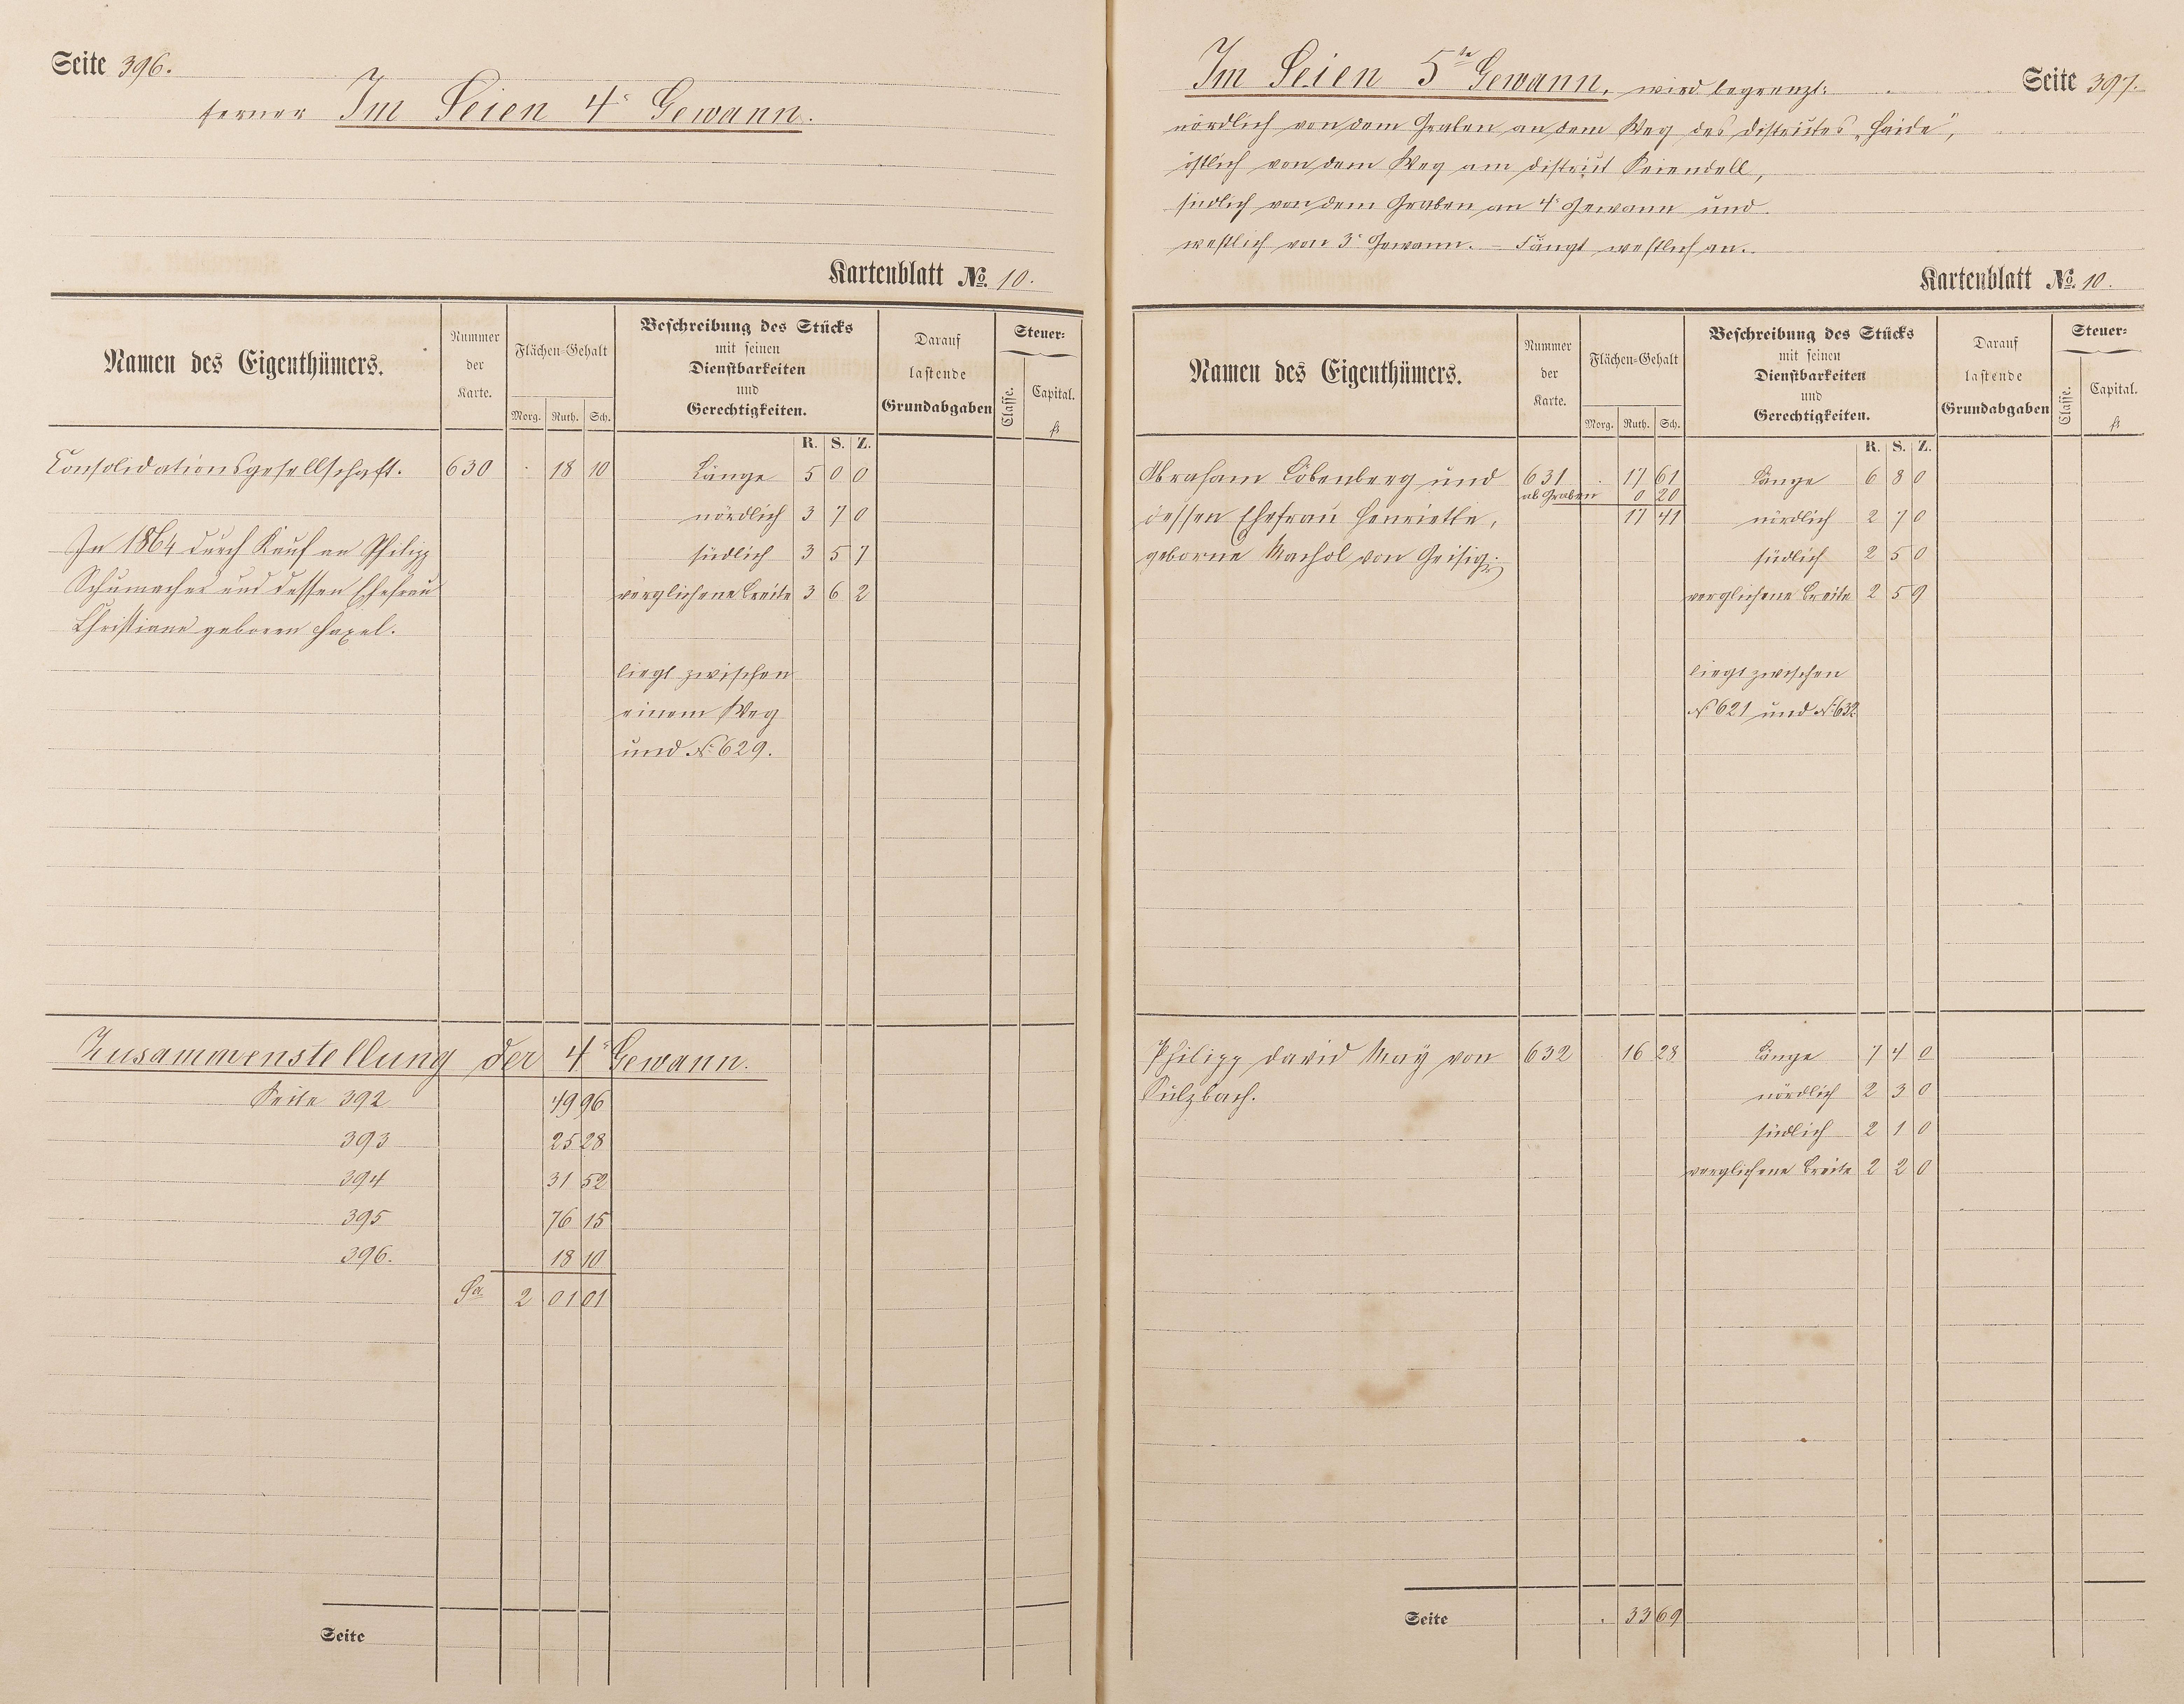 Seite 396.
ferner Im Seien 4te Gewann.
Kartenblatt No. 10.
Namen des Eigenthümers.
Nummer der Karte.
Flächen-Gehalt
Morg. Ruth. Sch.
Beschreibung des Stücks
mit seinen
Dienstbarkeiten
und
Gerechtigkeiten.
Darauf
lastende
Grundabgaben
Steuer-
Classe. Capital.
fl
R. S. Z.
Consolidationsgesellschaft. 630 . 18 10 Länge 5 0 0
nördlich 3 7 0
In 1864 durch Kauf an Philipp südlich 3 5 7
Schumacher und dessen Ehefrau verglichene Breite 3 6 2
Christiane geboren Haxel.
liegt zwischen
einem Weg
und No 629.
Zusammenstellung der 4te Gewann.
Seite 392 49 96
393 25 28
394 31 52
395 76 15
396. 18 10
Sa. 2 01 01
Seite
Im Seien 5te Gewann, wird begrenzt: Seite 397.
nördlich von dem Graben an dem Weg des Districtes „Haide",
östlich von dem Weg am District Seiendell,
südlich von dem Graben an 4r Gewann und
westlich von 3r Gewann. – Fängt westlich an.
Kartenblatt No. 10.
Namen des Eigenthümers.
Nummer der Karte.
Flächen-Gehalt
Morg. Ruth. Sch.
Beschreibung des Stücks
mit seinen
Dienstbarkeiten
und
Gerechtigkeiten.
Darauf
lastende
Grundabgaben
Steuer-
Classe. Capital.
fl
R. S. Z.
Abraham Löbenberg und 631 . 17 61 Länge 6 8 0
ab Graben 0 20
dessen Ehefrau Henriette, 17 41 nördlich 2 7 0
geborne Machol von Geisig. südlich 2 5 0
verglichene Breite 2 5 9
liegt zwischen
No 621 und No 632
Philipp David May von 632 16 28 Länge 7 4 0
Sulzbach. nördlich 2 3 0
südlich 2 1 0
verglichene Breite 2 2 0
Seite . 33 69